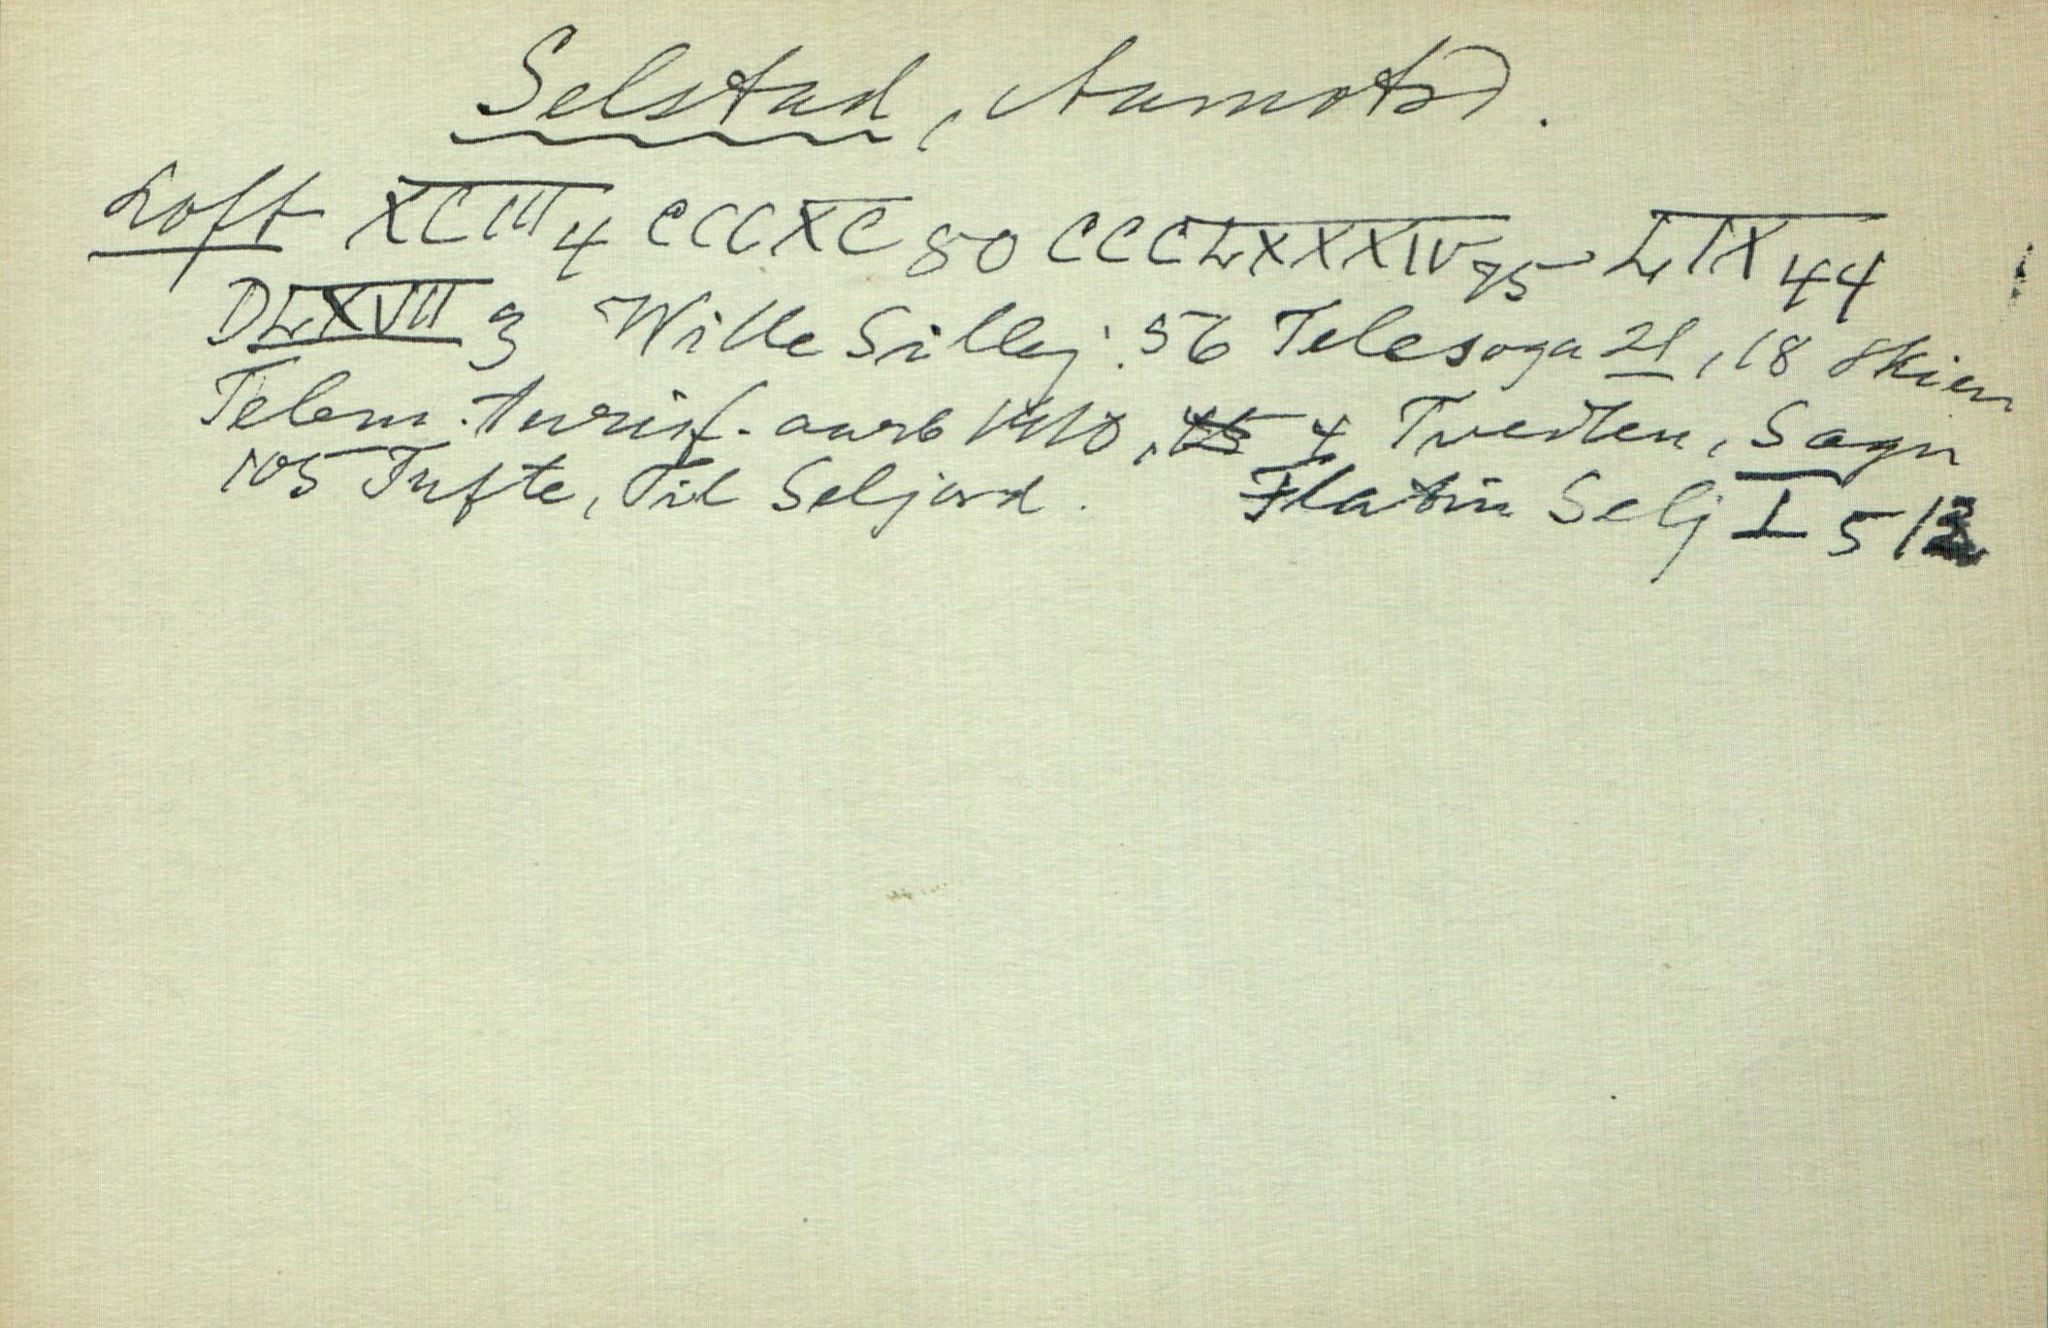 Selstad, Aamotsd.
Loft XCIII 4 CCCXC 80 CCCLXXXIV 95 LIX 44
DLXVII 3 Wille Sillej. 56 Telesoga 21, 18 Skien
Telem. turisf. aarb 1910, 4 Tveiten, Sagn
105 Tufte, Til Seljord. Flatin Selj I 512